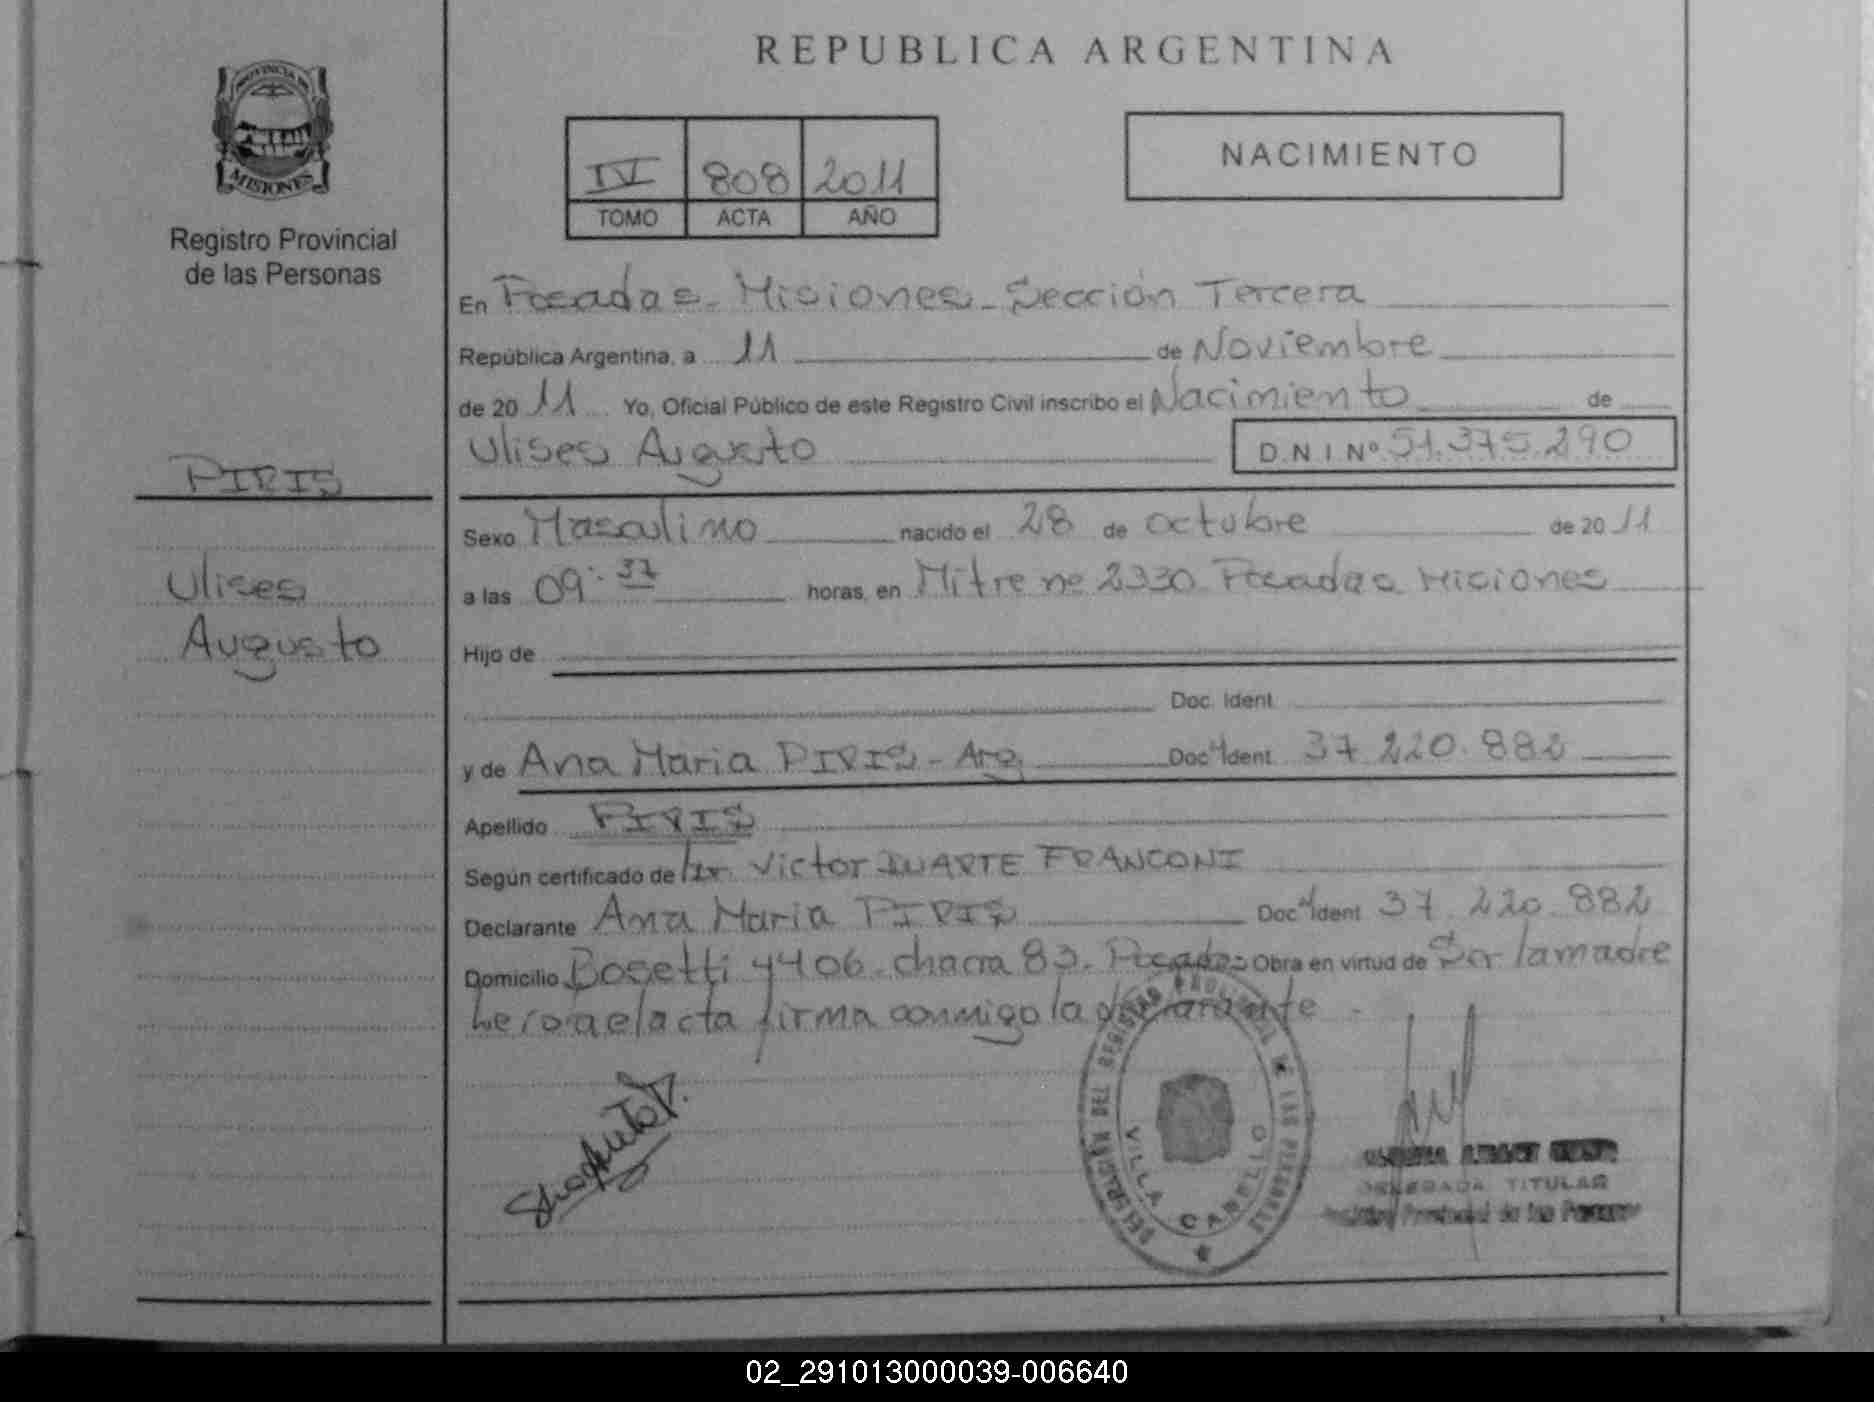 REPUBLICA ARGENTINA
PROVINCIA DE
MISIONES
Registro Provincial
de las Personas
IV 808 2011
TOMO ACTA AÑO
NACIMIENTO
En Posadas - Misiones - Sección Tercera
República Argentina, a 11 de Noviembre
de 20 11 Yo, Oficial Público de este Registro Civil inscribo el Nacimiento de
Ulises Augusto D.N.I Nº 51.375.290
PIRIS
Sexo Masculino nacido el 28 de octubre de 20 11
Ulises
a las 09:37 horas, en Mitre nº 2330 Posadas Misiones
Augusto
Hijo de
Doc. Ident.
y de Ana Maria PIRIS - Arg. Doc Ident. 37.220.882
Apellido PIRIS
Según certificado de Dr. Victor DUARTE FRANCONI
Declarante Ana Maria PIRIS Doc Ident 37.220.882
Domicilio Bosetti 4406 - chacra 83 - Posadas Obra en virtud de Ser la madre
firma conmigo la declarante
DELEGACIÓN DEL REGISTRO PROVINCIAL DE LAS PERSONAS
VILLA CABELLO
DELEGADA TITULAR
Registro Provincial de las Personas
02_291013000039-006640